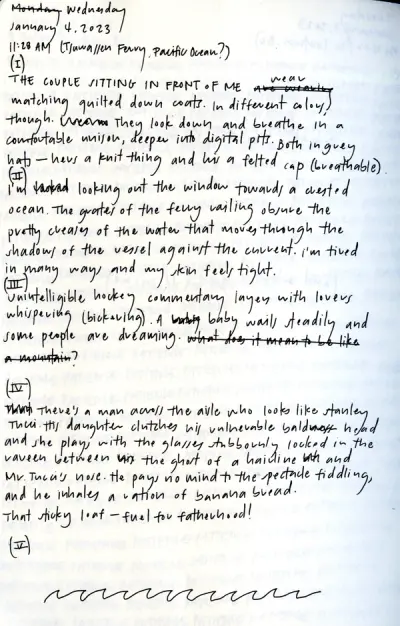 Monday Wednesday
January 4, 2023
11:28 AM (Tsawassen Ferry, Pacific Ocean?)
(I)
THE COUPLE SITTING IN FRONT OF ME wear
matching quilted down coats. In different colors,
though. They look down and breathe in a
comfortable unison, deeper into digital pits. Both in grey
hats – hers a knit thing and his a felted cap (breathable).
(II)
I'm looking out the window towards a crested
ocean. The grates of the ferry railing obsure the
pretty creases of the water that moves through the
shadows of the vessel against the current. I'm tired
in many ways and my skin feels tight.
(III)
Unintelligible hockey commentary layers with lovers
whispering (bickering). A baby wails steadily and
some people are dreaming. what does it mean to be like
a mountain?
(IV)
There's a man across the aisle who looks like Stanley
Tucci. His daughter clutches his vulnerable bald head
and she plays with the glasses stubbornly locked in the
raveen between the ghost of a hairline and
Mr. Tucci's nose. He pays no mind to the spectacle fiddling,
and he inhales a ration of banana bread.
That sticky loaf – fuel for fatherhood!
(V)